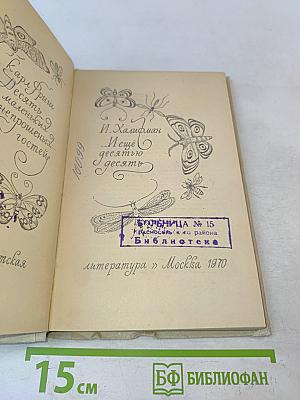 Карл Фриш
Десять
маленьких
непрошеных
гостей
тская
И. Халифман
...И еще
десятью
десять
БОЛЬНИЦА № 15
района
Библиотека
литература» Москва 1970
15 см
БФ БИБЛИОФАН